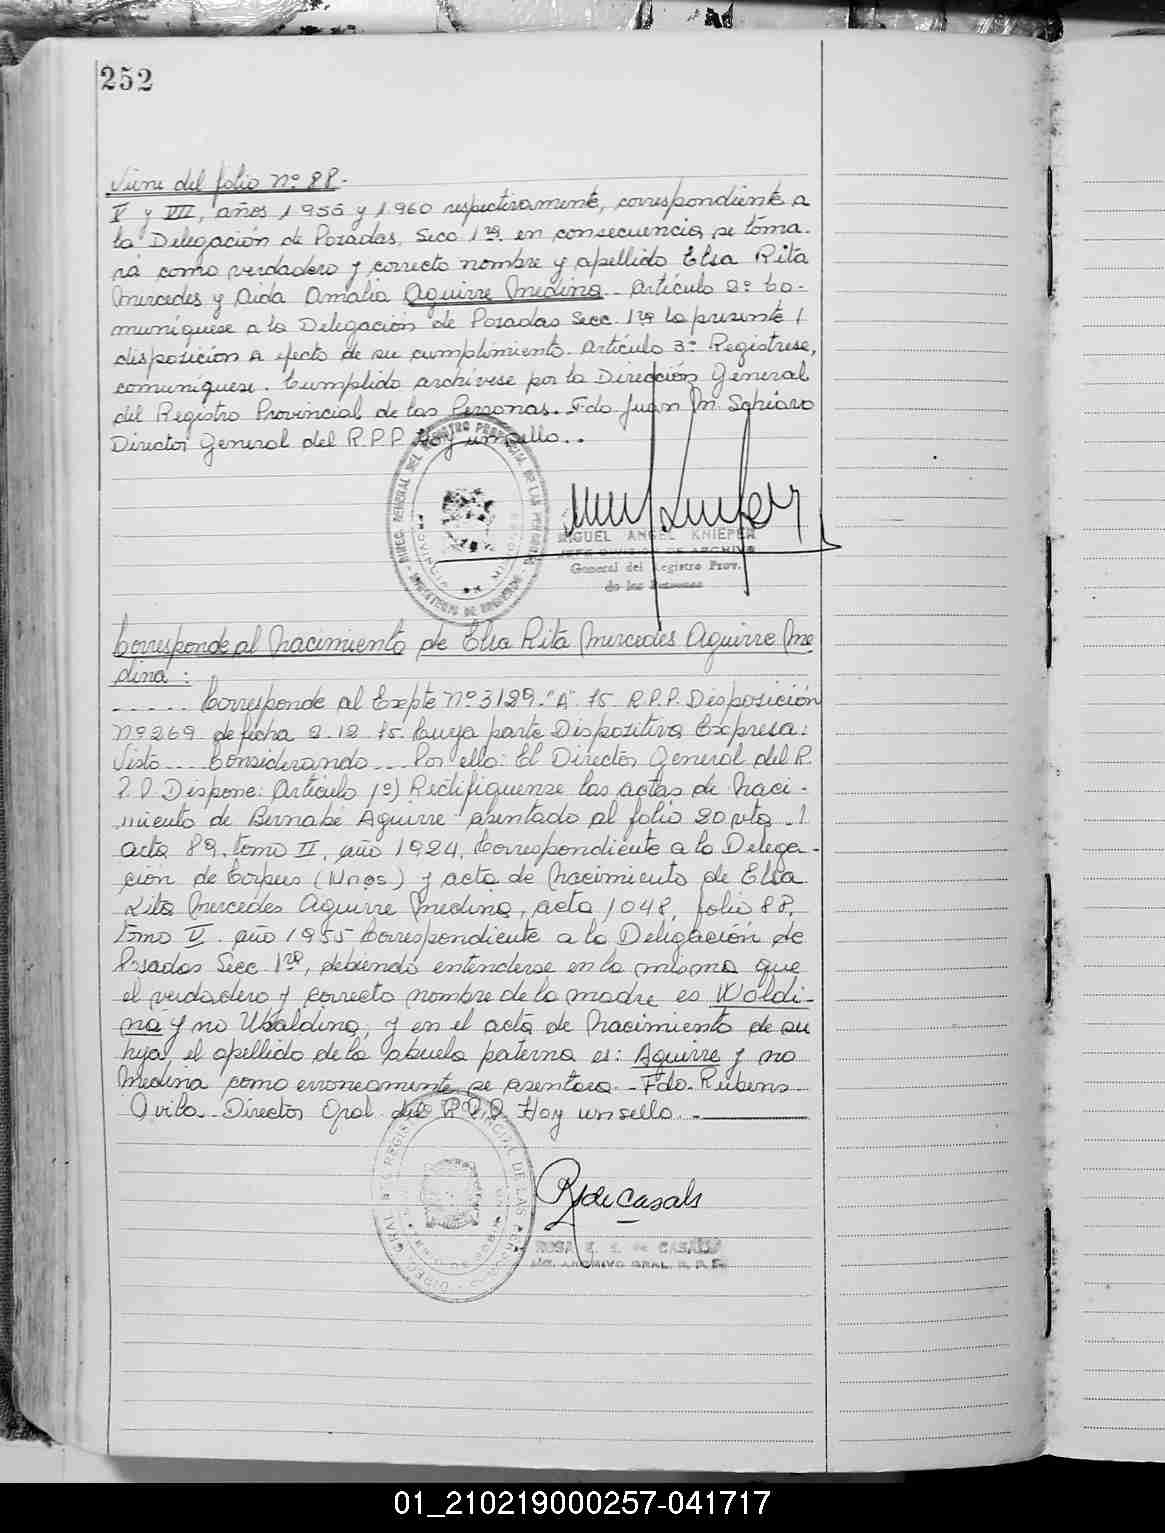 252
Viene del folio Nº 88.-
V y VII, años 1.955 y 1.960 respectivamente, correspondiente a
la Delegación de Posadas, Secc 1ra. en consecuencia, se toma-
rá como verdadero y correcto nombre y apellido Elsa Rita
Mercedes y Aida Amalia Aguirre Medina. Artículo 2º Co-
muníquese a la Delegación de Posadas Secc. 1ra la presente /
disposición a efecto de su cumplimiento. Artículo 3º Regístrese,
comuníquese. Cumplido archívese por la Dirección General
del Registro Provincial de las Personas. Fdo Juan M.
Director General del R.P.P. Hay un sello..
DIREC. GENERAL DEL REGISTRO PROVINCIAL DE LAS PERSONAS
MINISTERIO DE GOBIERNO
MIGUEL ANGEL KNIEPER
JEFE DIVISION DE ARCHIVO
General del Registro Prov.
de las Personas
Corresponde al Nacimiento de Elsa Rita Mercedes Aguirre Me
dina :
..... Corresponde al Expte Nº 3129. "A" 75 R.P.P. Disposición
Nº 269 de fecha 2.12.75. Cuya parte Dispositiva Expresa:
Visto... Considerando... Por ello: El Director General del R.
P.P. Dispone: Artículo 1º) Rectifíquense las actas de Naci-
miento de Bernabe Aguirre asentado al folio 20 vta. /
acta 89, tomo II, año 1924, Correspondiente a la Delega-
ción de Corpus (Mnes) y acta de Nacimiento de Elsa
Rita Mercedes Aguirre Medina, acta 1048, folio 88,
tomo V. año 1955 Correspondiente a la Delegación de
Posadas Secc 1ra, debiendo entenderse en la misma que
el verdadero y correcto nombre de la madre es Waldi-
na y no Ubaldina, y en el acta de Nacimiento de su
hija, el apellido de la abuela paterna es: Aguirre y no
Medina como erroneamente se asentara. Fdo. Rubens
Avila Director Gral. del R.P.P. Hay un sello.
R de Casals
ROSA de CASALS
ARCHIVO GRAL. R. P. P.
01_210219000257-041717